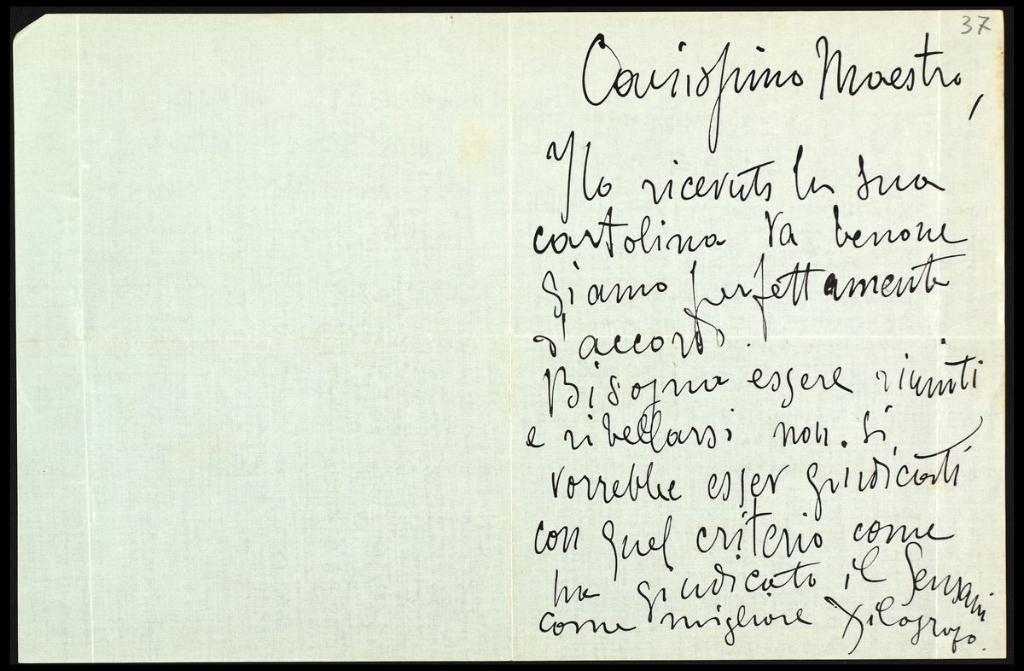 37
Carissimo Maestro,
Ho ricevuto la sua
cartolina va benone
siamo perfettamente
d'accordo.
Bisogna essere riuniti
e ribellarsi non si
vorrebbe esser giudicati
con quel criterio come
ha giudicato il Sensani
come migliore Xilografo.